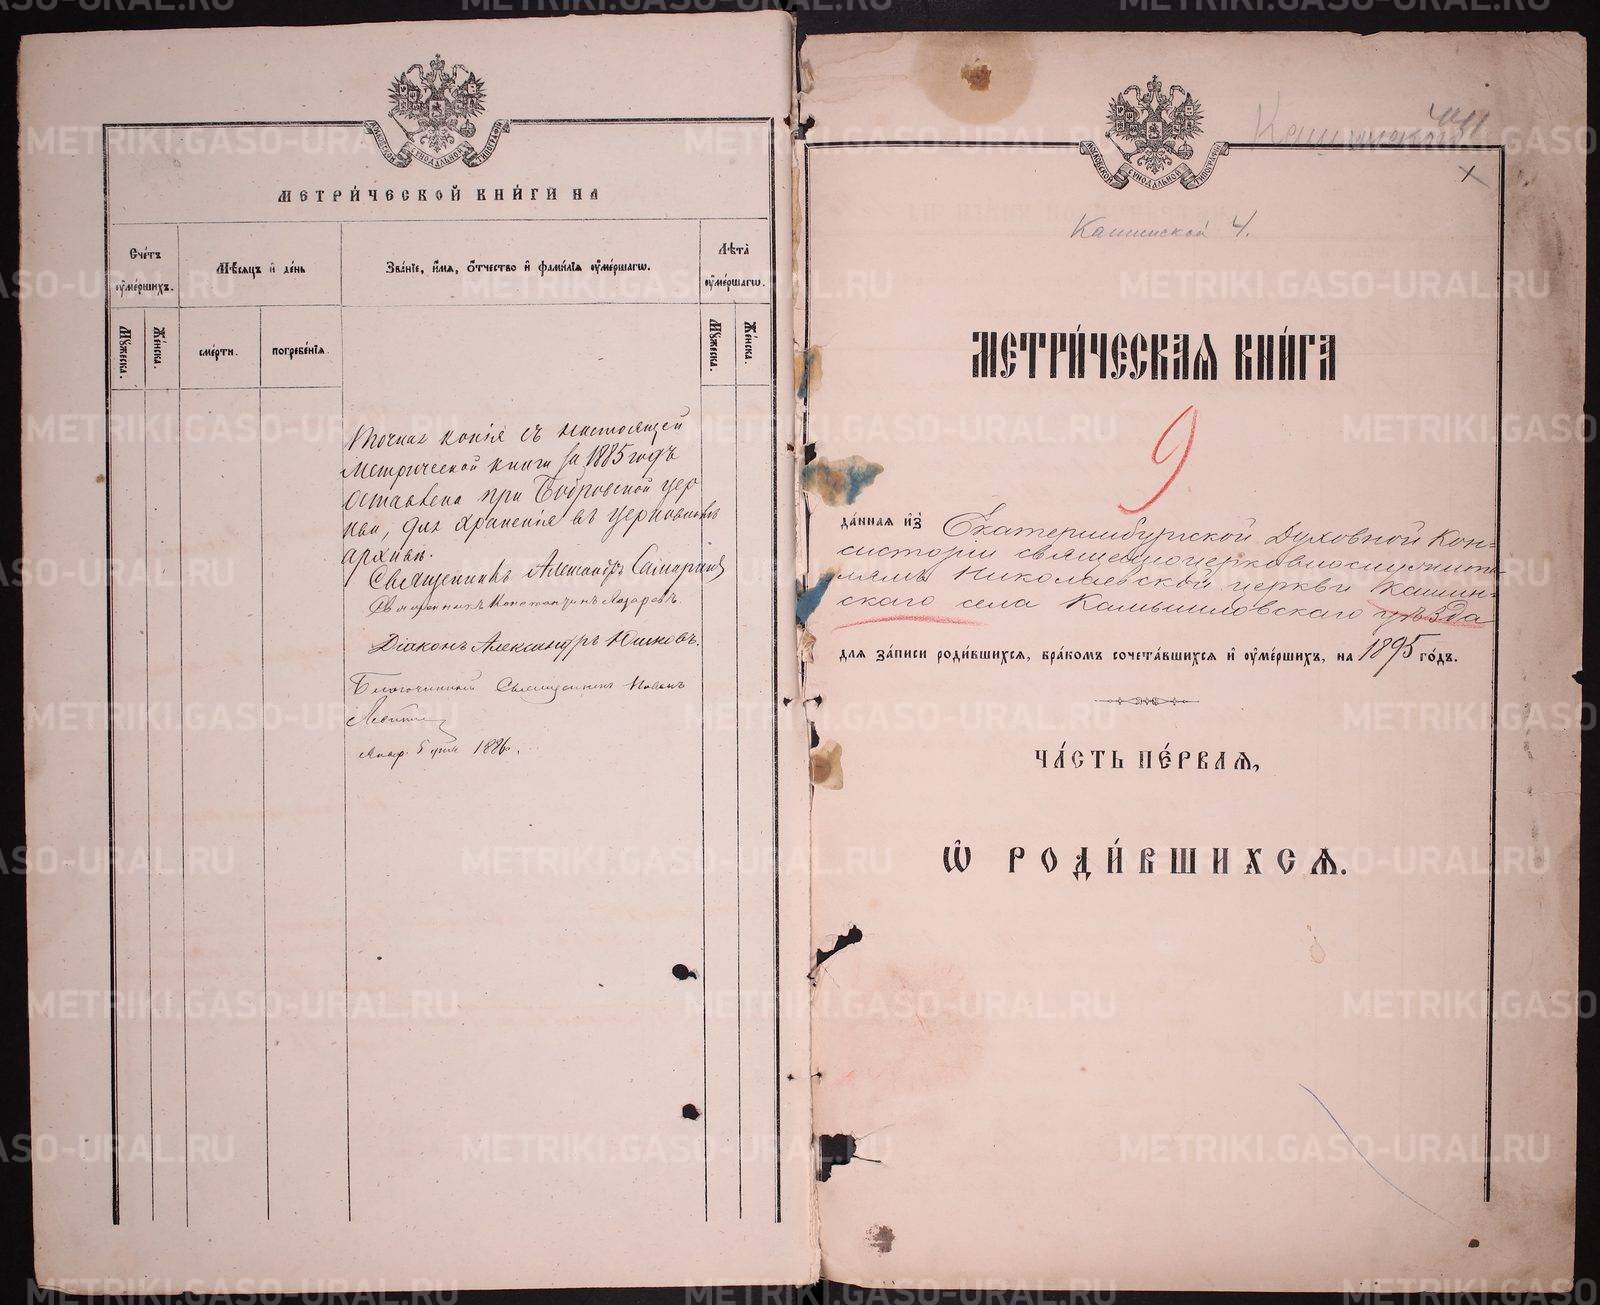 МОСКОВСКОЙ СѴНОДАЛЬНОЙ ТИПОГРАФІИ
МЕТРИ́ЧЕСКОЙ КНИ́ГИ НА
Сче́тъ ᲂу҆ме́ршихъ.
Мѣ́сѧцъ и҆ де́нь
Зва́нїе, и҆́мѧ, ѻ҆́тчество и҆ фами́лїѧ ᲂу҆ме́ршагѡ.
Лѣ́та ᲂу҆ме́ршагѡ.
Мꙋ́жеска.
Же́нска.
сме́рти.
погребе́нїѧ.
Мꙋ́жеска.
Же́нска.
Точная копія съ настоящей
метрической книги за 1885 годъ
оставлена при Бобровской цер
кви, для храненія въ церковномъ
архивѣ.
Священникъ Александръ Самаринъ
Священникъ Константинъ Лазаревъ.
Діаконъ Александръ Юшковъ.
Благочинный Священникъ
Январ. 5 дня 1886.
МОСКОВСКОЙ СѴНОДАЛЬНОЙ ТИПОГРАФІИ
Кашинской
Кашинской ч.
МЕТРИ́ЧЕСКАѦ КНИ́ГА
9
да́ннаѧ и҆з̾ Екатеринбургской Духовной Кон-
систоріи священноцерковнослужите-
лямъ Николаевской церкви Кашин-
скаго села Камышловскаго уѣзда
длѧ за́писи роди́вшихсѧ, бра́комъ сочета́вшихсѧ и҆ ᲂу҆ме́ршихъ, на 1895 го́дъ.
ЧА́СТЬ ПЕ́РВАѦ,
Ѽ РОДИ́ВШИХСѦ.
METRIKI.GASO-URAL.RU